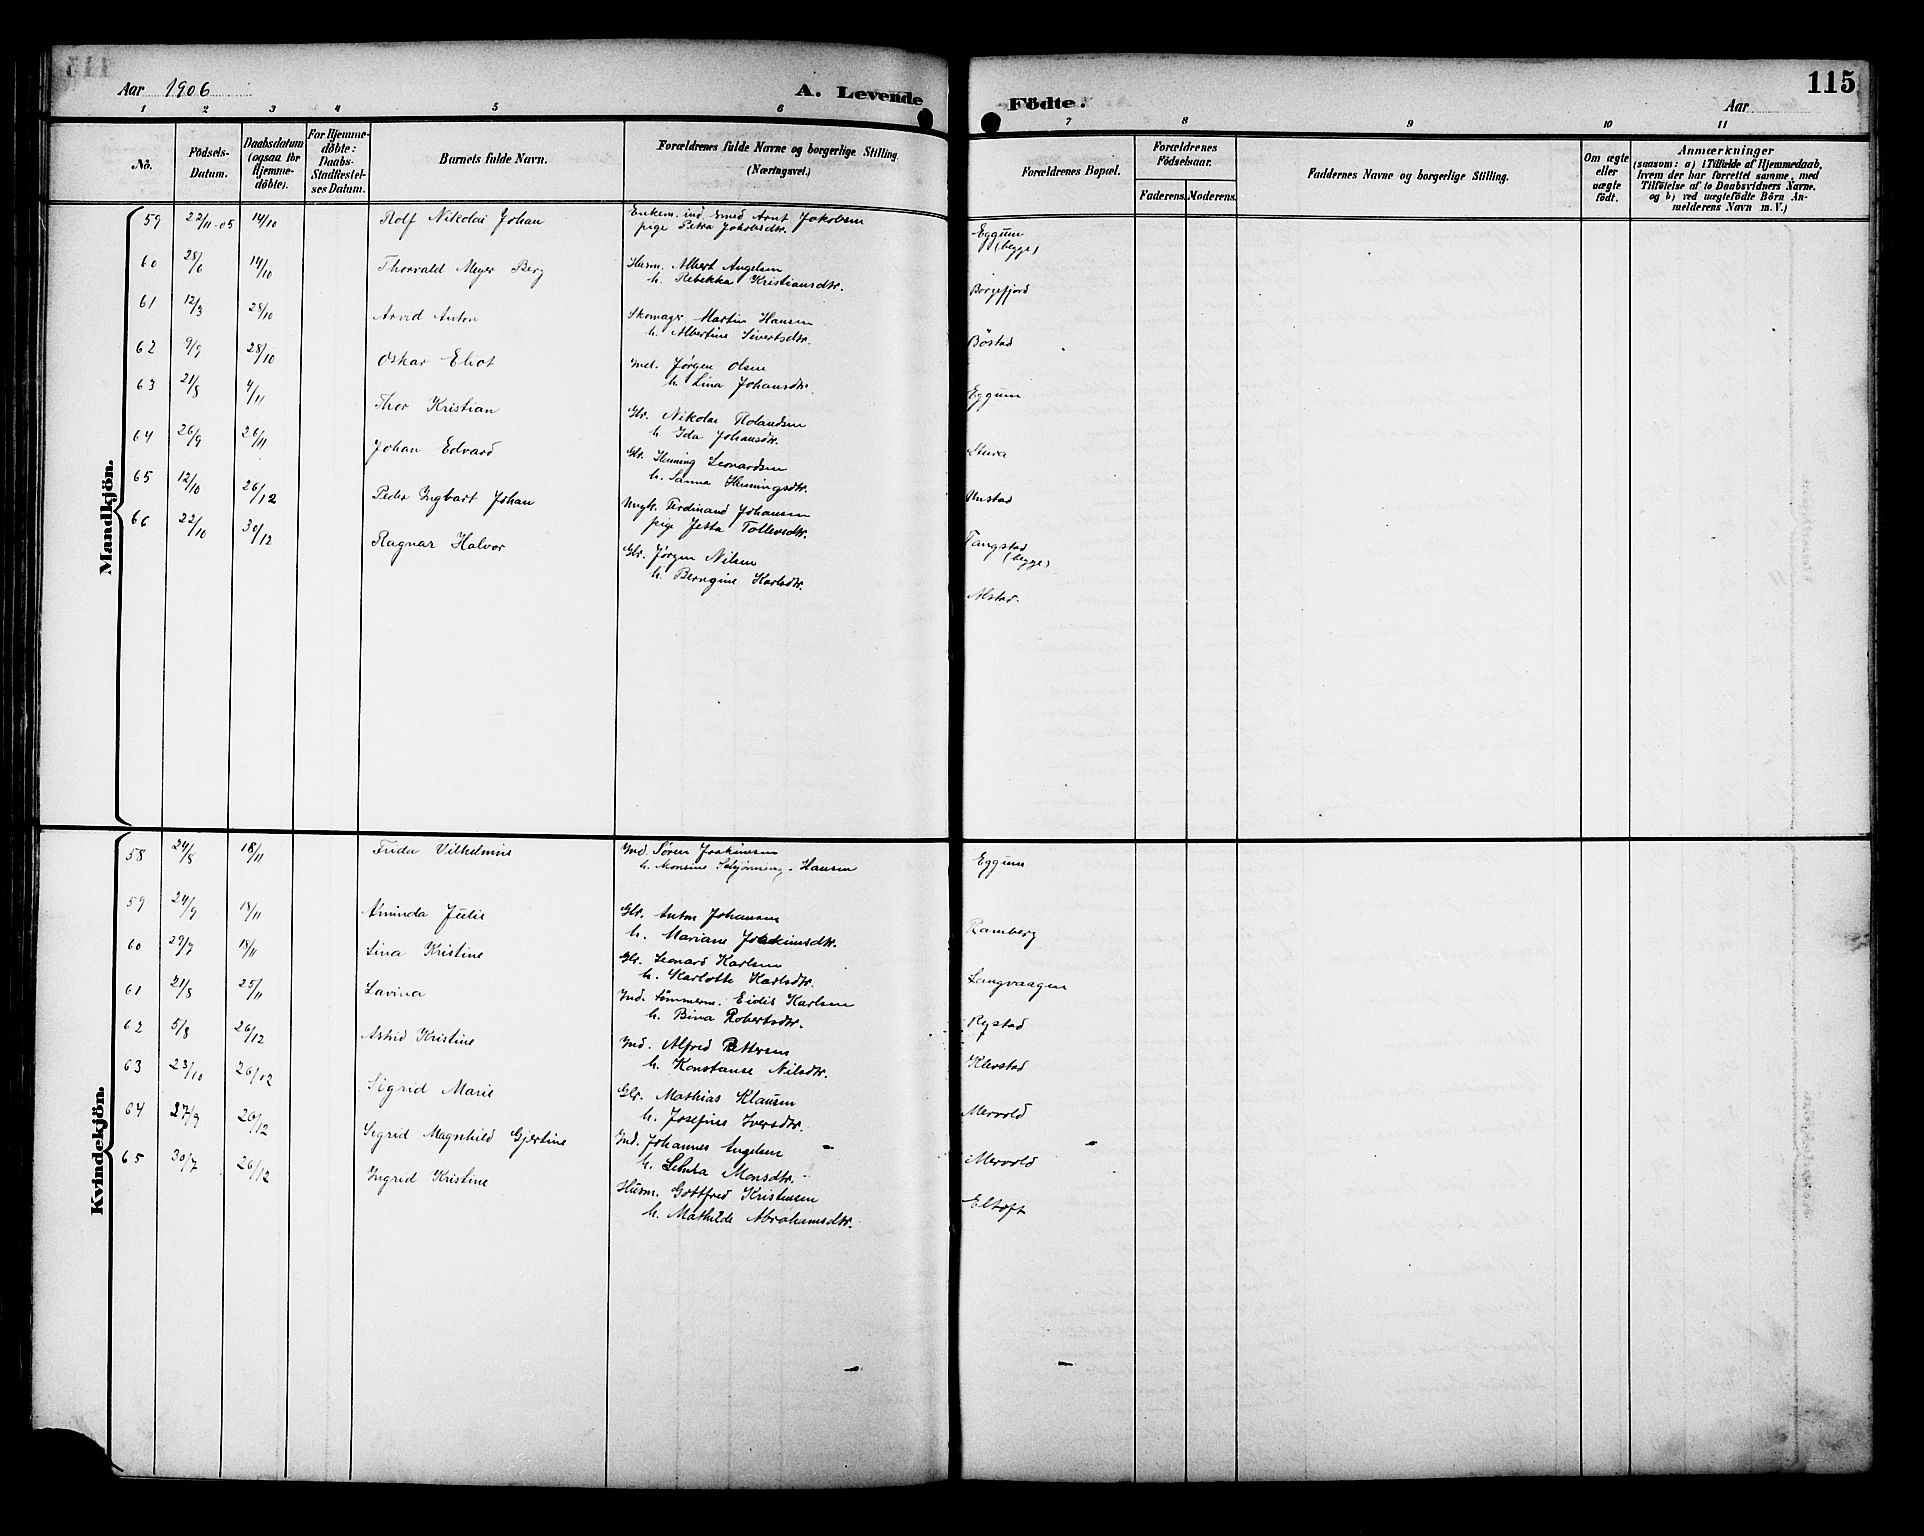 115
Aar 1906
A. Levende Födte.
Aar
1 2 3 4 5 6 7 8 9 10 11
No.
Födsels-Datum.
Daabsdatum (ogsaa for Hjemme-döbte).
For Hjemme-döbte: Daabs-Stadfæstel-ses Datum.
Barnets fulde Navn.
Forældrenes fulde Navne og borgerlige Stilling. (Næringsvei.)
Forældrenes Bopæl.
Forældrenes Födselsaar.
Faderens. Moderens.
Faddernes Navne og borgerlige Stilling.
Om ægte eller uægte födt.
Anmærkninger
(saasom: a) i Tilfælde af Hjemmedaab, hvem der har forrettet samme, med Tilföielse af to Daabsvidners Navne. og b) ved uægtefödte Börn An-melderens Navn m. V.)
Mandkjön.
59 22/11-05 14/10 Rolf Nikolai Johan Enkem. ind. smed Arnt Jakobsen Eggum
pige Petra Jakobsdtr. (begge)
60 28/6 14/10 Thorvald Meyer Berg Husm. Albert Angelsen Borgefjord
h. Rebekka Kristiansdtr.
61 12/3 28/10 Arvid Anton Skomager Martin Hansen Böstad
h. Albertine Sivertsdtr.
62 9/9 28/10 Oskar Eliot Ind. Jørgen Olsen Eggum
h. Lina Johansdtr.
63 21/8 4/11 Thor Kristian Gbr. Nikolai Rolandsen Stura
h. Ida Johansdtr.
64 26/9 26/11 Johan Edvard Gbr. Henning Leonardsen Unstad
h. Sanna Henningsdtr.
65 12/10 26/12 Peder Ingbart Johan Ungk. Ferdinand Johansen Tangstad
pige Jetta Tollevsdtr. (begge)
66 22/10 30/12 Ragnar Halvor Gbr. Jörgen Nilsen Alstad.
h. Berngine Karlsdtr.
Kvindekjön.
58 24/8 18/11 Frida Vilhelmine Ind Sören Joakimsen Eggum
h. Monsine Schjønning-Hansen
59 24/9 18/11 Aminda Julie Gbr. Anton Johansen Ramberg
h. Mariane Joakimsdtr.
60 29/7 18/11 Lina Kristine Gbr. Leonard Karlsen Langvaagen
h. Karlotte Karlsdtr.
61 21/8 25/11 Lavina Ind. Tømmerm. Eidis Karlsen Rystad
h. Bina Robertsdtr.
62 5/8 26/12 Astrid Kristine Ind. Alfred Pettersen Klevstad
h. Konstanse Nilsdtr.
63 23/10 26/12 Sigrid Marie Gbr. Mathias Klausen Mervold
h. Josefine Iversdtr.
64 27/9 26/12 Sigrid Magnhild Gjertine Ind. Johannes Angelsen Mervold
h. Monsdtr.
65 30/7 26/12 Ingrid Kristine Husm. Gottfred Kristensen Eltoft
h. Mathilde Abrahamsdtr.